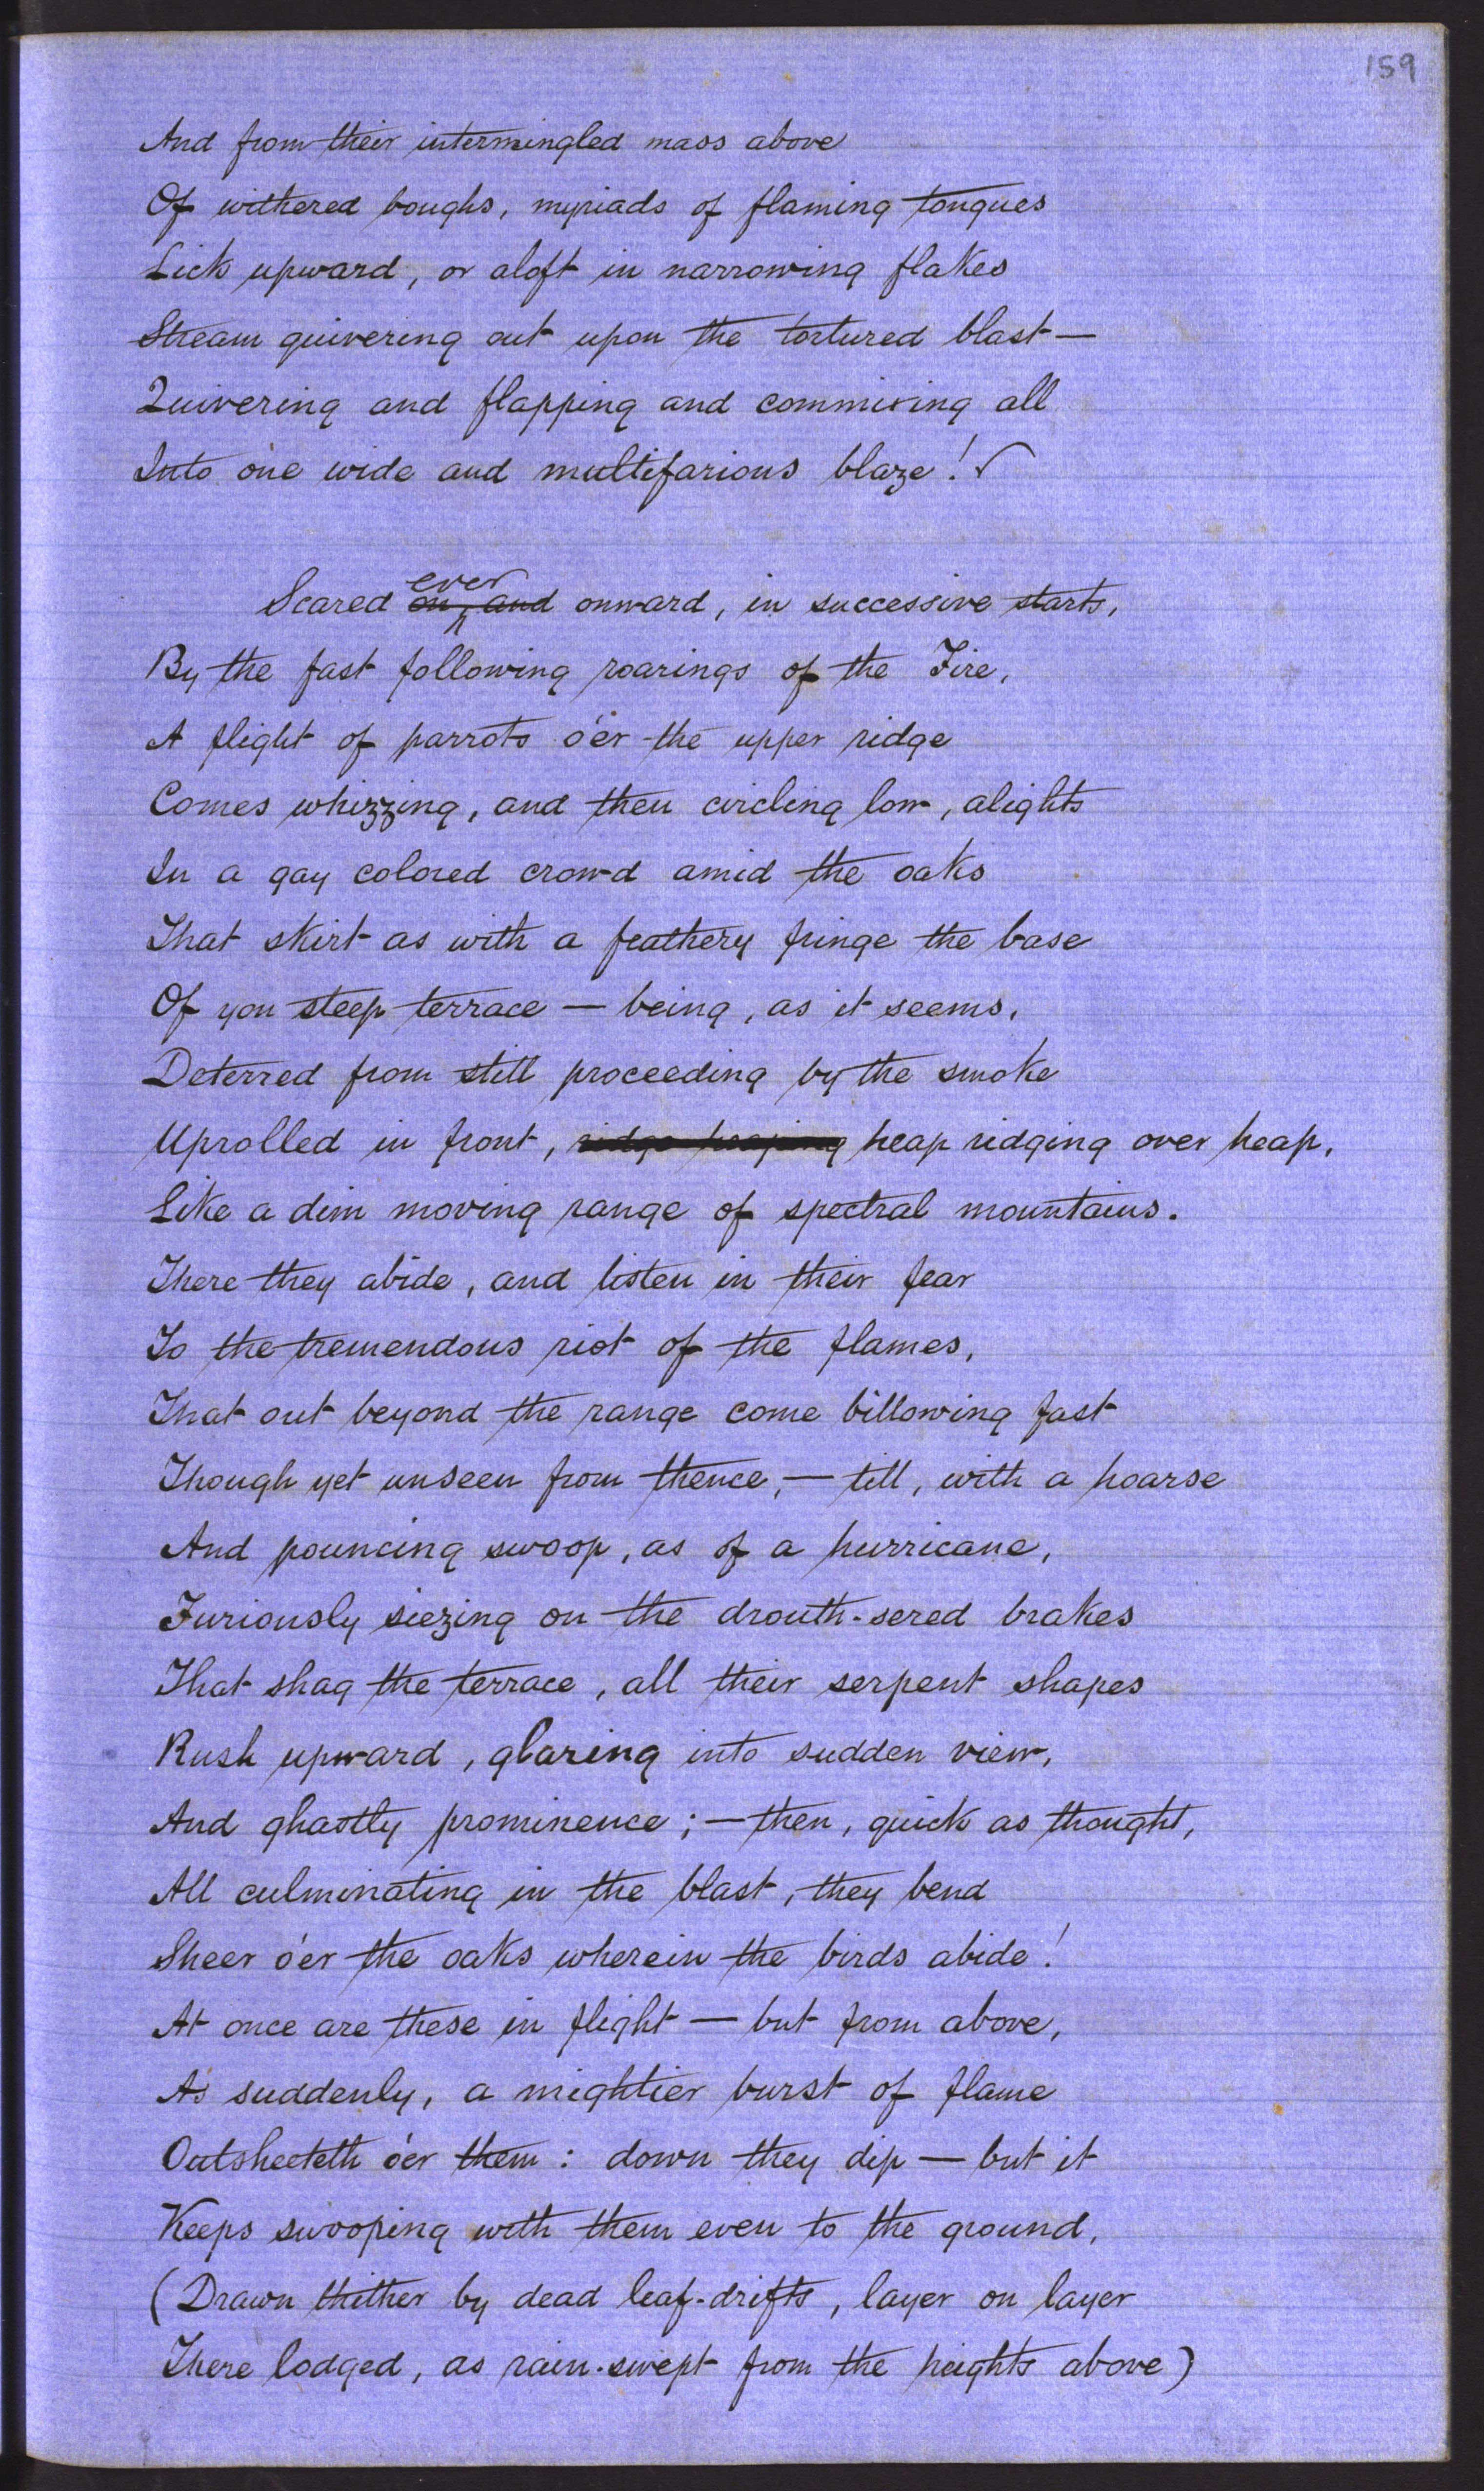 159
And from their intermingled mass above
Of withered boughs, myriads of flaming tongues
Lick upward, or aloft in narrowing flakes
Stream quivering out upon the tortured blast—
Quivering and flapping and commixing all
Into one wide and multifarious blaze!✓
ever
Scared on, and onward, in successive starts,
By the fast following roarings of the Fire,
A flight of parrots o'er the upper ridge
Comes whizzing, and then circling low, alights
In a gay colored crowd amid the oaks
That skirt as with a feathery fringe the base
Of yon steep terrace — being, as it seems,
Deterred from still proceeding by the smoke
Uprolled in front, ridge heaping heap ridging over heap,
Like a dim moving range of spectral mountains.
There they abide, and listen in their fear
To the tremendous riot of the flames,
That out beyond the range come billowing fast
Though yet unseen from thence,— till, with a hoarse
And pouncing swoop, as of a hurricane,
Furiously siezing on the drouth-sered brakes
That shag the terrace, all their serpent shapes
Rush upward, glaring into sudden view,
And ghastly prominence;— then, quick as thought,
All culminating in the blast, they bend
Sheer o'er the oaks wherein the birds abide!
At once are these in flight — but from above,
As suddenly, a mightier burst of flame
Outsheeteth o'er them: down they dip — but it
Keeps swooping with them even to the ground,
(Drawn thither by dead leaf-drifts, layer on layer
There lodged, as rain-swept from the heights above)